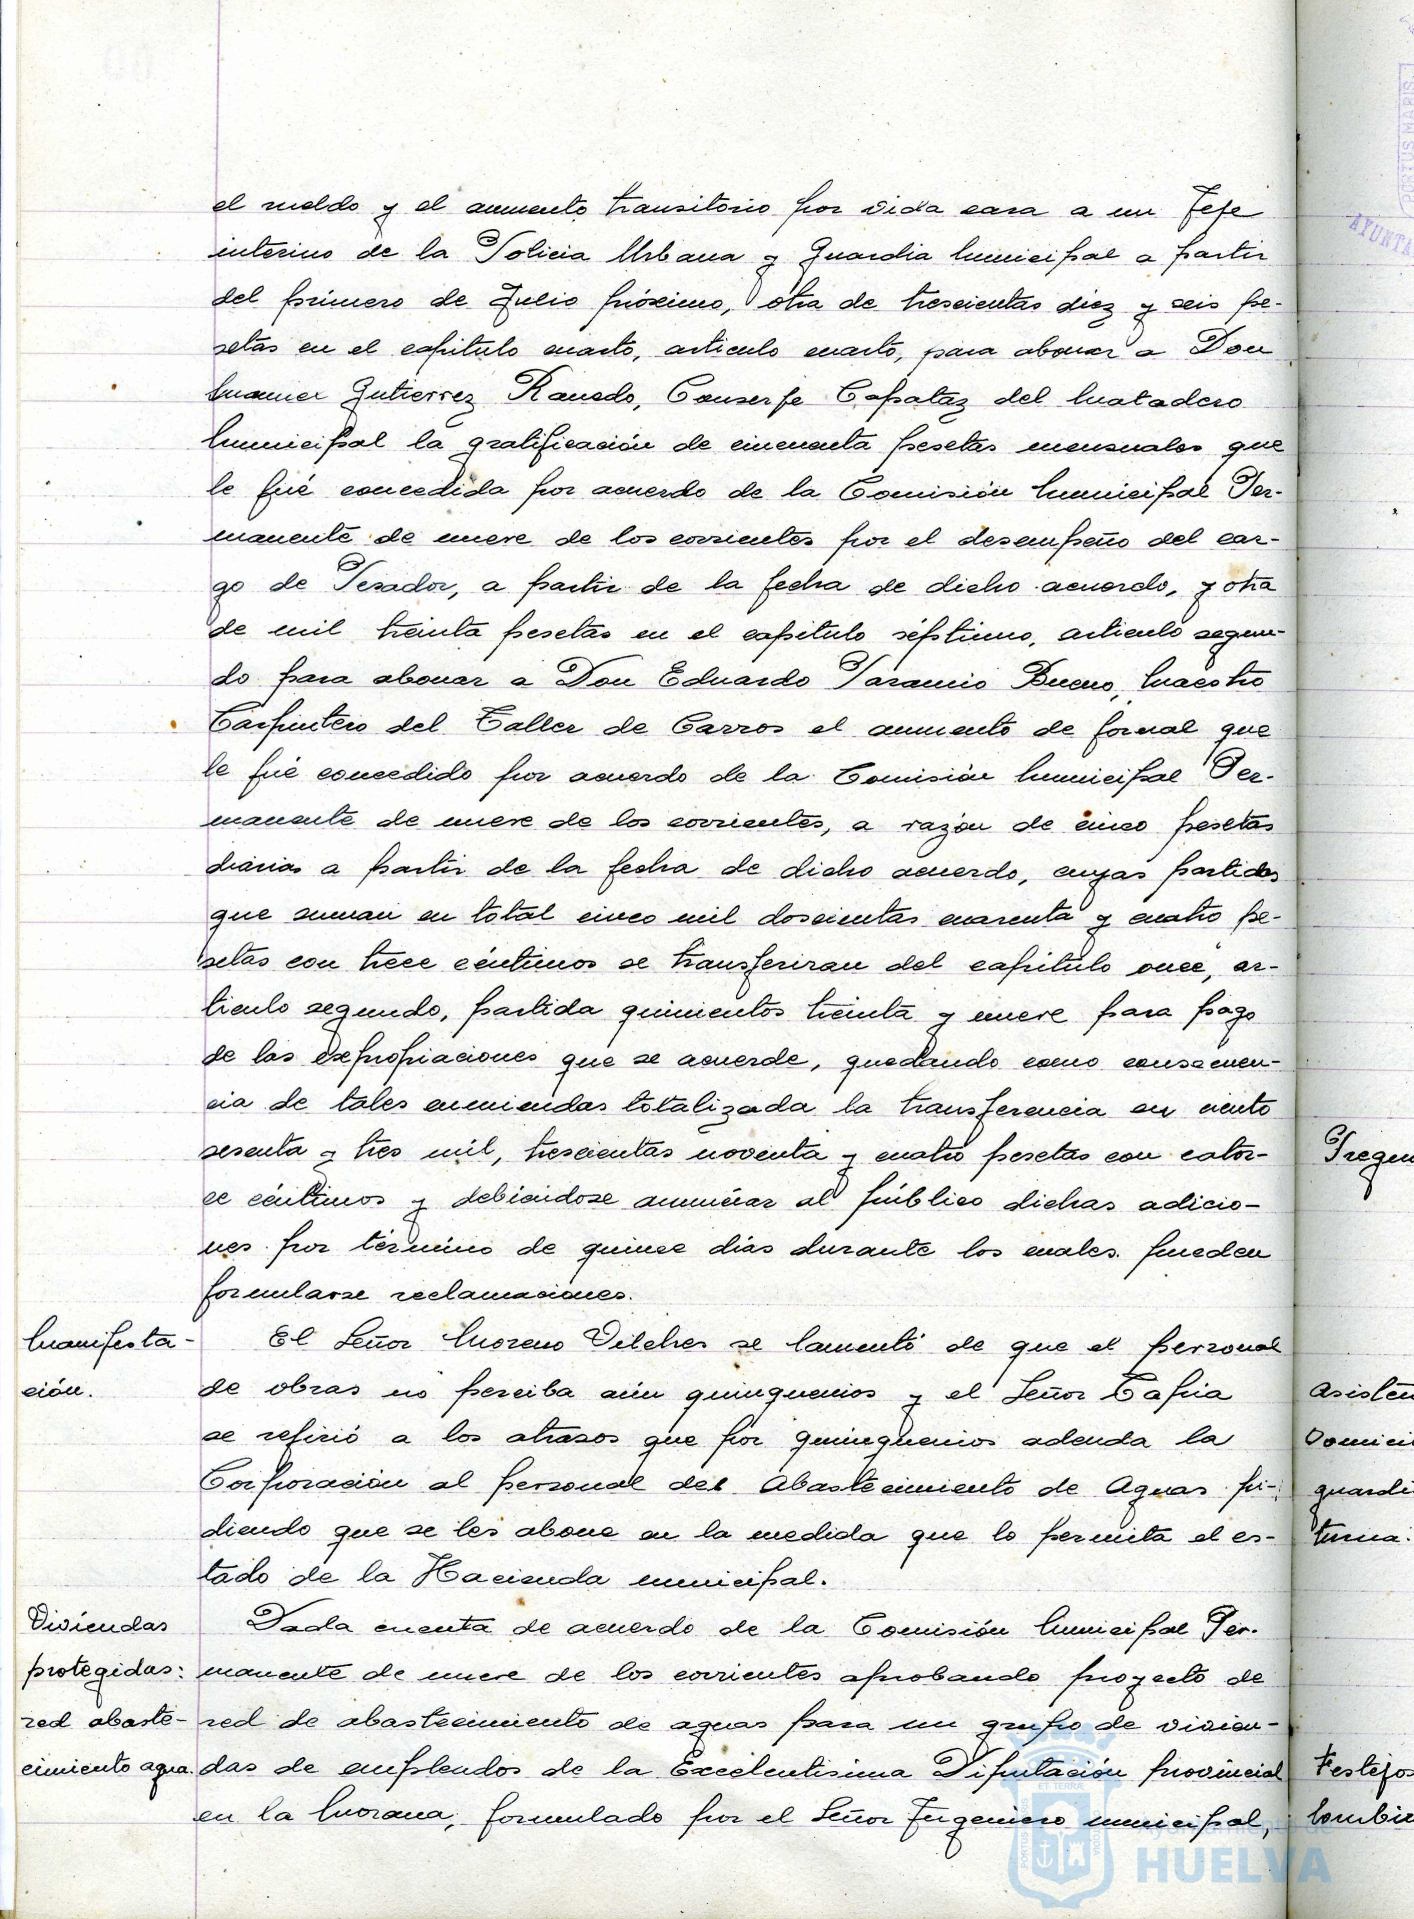 el sueldo y el aumento transitorio por vida cara a un Jefe
interino de la Policia Urbana y Guardia Municipal a partir
del primero de Julio próximo, otra de trescientas diez y seis pe-
setas en el capitulo cuarto, articulo cuarto, para abonar a Don
Manuel Gutierrez Ranedo, Conserje Capataz del Matadero
Municipal la gratificación de cincuenta pesetas mensuales que
le fué concedida por acuerdo de la Comisión Municipal Per-
manente de nueve de los corrientes por el desempeño del car-
go de Pesador, a partir de la fecha de dicho acuerdo, y otra
de mil treinta pesetas en el capitulo séptimo, articulo segun-
do para abonar a Don Eduardo Paramio Bueno, Maestro
Carpintero del Taller de Carros el aumento de jornal que
le fué concedido por acuerdo de la Comisión Municipal Per-
manente de nueve de los corrientes, a razón de cinco pesetas
diarias a partir de la fecha de dicho acuerdo, cuyas partidas
que suman en total cinco mil doscientas cuarenta y cuatro pe-
setas con trece céntimos se transferiran del capitulo once, ar-
ticulo segundo, partida quinientos treinta y nueve para pago
de las expropiaciones que se acuerde, quedando como consecuen-
cia de tales enmiendas totalizada la transferencia en ciento
sesenta y tres mil, trescientas noventa y cuatro pesetas con cator-
ce céntimos y debiéndose anunciar al público dichas adicio-
nes por término de quince días durante los cuales pueden
formularse reclamaciones.
Manifesta-
ción.
El Señor Moreno Vilches se lamentó de que el personal
de obras no perciba aún quinquenios y el Señor Tapia
se refirió a los atrasos que por quinquenios adeuda la
Corporación al personal del Abastecimiento de Aguas pi-
diendo que se les abone en la medida que lo permita el es-
tado de la Hacienda municipal.
Viviendas
protegidas:
red abaste-
cimiento agua.
Dada cuenta de acuerdo de la Comisión Municipal Per-
manente de nueve de los corrientes aprobando proyecto de
red de abastecimiento de aguas para un grupo de vivien-
das de empleados de la Excelentísima Diputación provincial
en la Morana, formulado por el Señor Ingeniero municipal,
Asisten
Domici
guardi
turna.
Festejos
PORTUS MARIS
AYUNTA
Ayuntamiento de
HUELVA